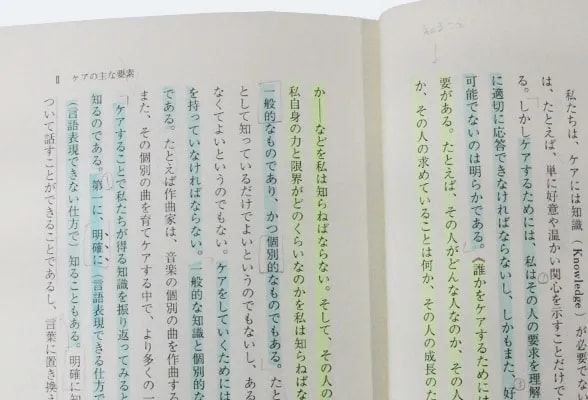 私たちは、ケアには知識（Knowledge）が必要で
は、たとえば、単に好意や温かい関心を示すことだけで
る。しかしケアするためには、私はその人の要求を理解
に適切に応答できなければならないし、しかもまた、好
可能でないのは明らかである。《誰かをケアするためには
要がある。たとえば、その人がどんな人なのか、その人
か、その人の求めていることは何か、その人の成長のた
Ⅱ ケアの主な要素
か――などを私は知らねばならない。そして、その人の
私自身の力と限界がどのくらいなのかを私は知らねばな
一般的なものであり、かつ個別的なものでもある。たと
として知っているだけでよいというのでもないし、ある
なくてよいというのでもない。ケアをしていくためには
を持っていなければならない。一般的な知識と個別的な
である。たとえば作曲家は、音楽の個別の曲を作曲する
また、その個別の曲を育てケアする中で、より多くの一
「ケアすることで私たちが得る知識を振り返ってみると
知るのである。第一に、明確に（言語表現できる仕方で
（言語表現できない仕方で）知ることもある。明確に知
ついて話すことができることであるし、言葉に置き換え